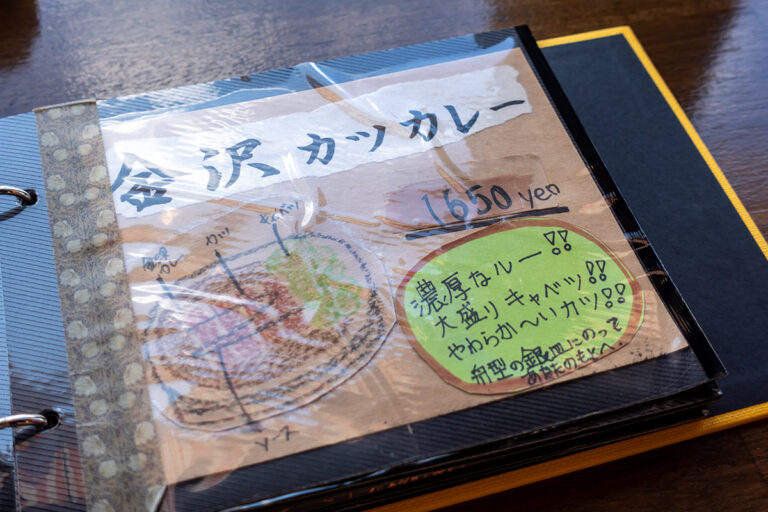 金沢カツカレー
1650 yen
キャベツ
カツ
カレー
ソース
濃厚なルー!!
大盛りキャベツ!!
やわらか〜いカツ!!
舟型の銀皿にのって
あなたのもとへ